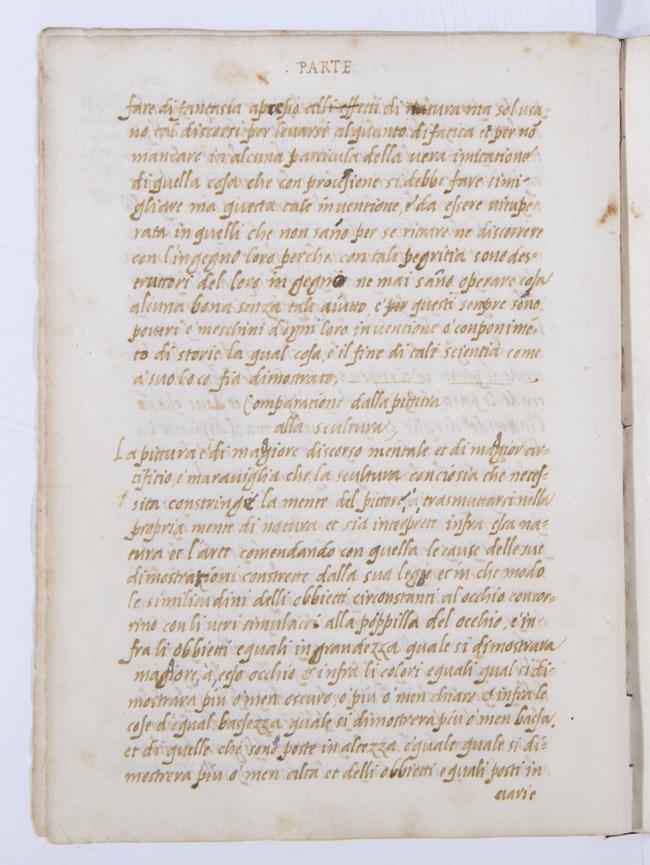 . PARTE
fare di fantasia apresso alli effetti di natura ma sol usa-
no tal discorsi per levarse alquanto di fatica et per nō
mancare in alcuna particula della vera imitatione
di quella cosa che con procisione si debbe fare simi-
gliare ma questa tale inventione, è da essere vitupe-
rata in quelli che non sañō per se ritrare ne discorrere
con l'ingegno loro perche con tale pegritia sono des-
truttori del loro in gegno ne mai sañō operare cosa
alcuna bona senza tale aiutto e per questi sempre sono
poveri e meschini d'ogni loro inventione o' conponimē-
to di storie la qual cosa, è il fine di tale scientia come
a suo loco fia dimostrato.
Comparatione dalla pittura
alla scultura,
La pittura e' di magiore discorso mentale et di magior ar-
tificio e' maraviglia che la scultura conciosia che neces-
sita constringie la mente del pictore, à trasmuttarsi nella
propria mente di natura et sia interprete infra essa na-
tura et l'arte comendando con quella le cause delle sue
dimostrationi constrette dalla sua legge et in che modo
le similitudini delli obbietti circonstanti al occhio concor-
rino con li veri simulacri alla poppilla del occhio, e in-
fra li obbietti equali in grandezza quale si dimostrara
magiore, à esso occhio & infra li colori equali qual si di-
mostrara piu o' men oscuro, o' piu o' men chiaro & infra le
cose d'equal bassezza quale si dimostrera piu o' men bassa,
et di quelle che sono poste in altezza equale quale si di-
mostrera piu o' men alta et delli obbietti equali posti in
varie